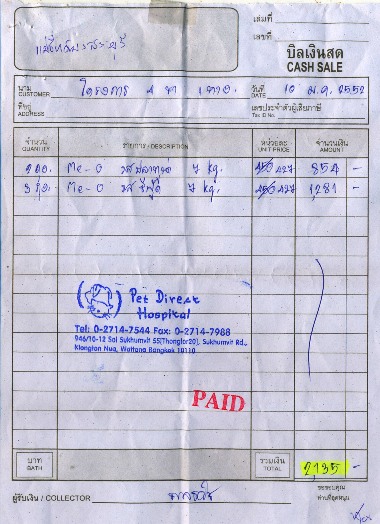 เล่มที่
เลขที่
บิลเงินสด
CASH SALE
นาม
CUSTOMER
โครงการ 4 ขา
วันที่
DATE
10 ม.ค. 2552
ที่อยู่
ADDRESS
เลขประจำตัวผู้เสียภาษี
Tax ID No.
จำนวน
QUANTITY
รายการ - DESCRIPTION
หน่วยละ
UNIT PRICE
จำนวนเงิน
AMOUNT
2 Me-O รสปลาทูน่า 7 kg. 450 427 854 -
3 Me-O รสซีฟู้ด 7 kg. 450 427 1,281 -
Pet Direct
Hospital
Tel: 0-2714-7544 Fax: 0-2714-7988
946/10-12 Soi Sukhumvit 55(Thonglor20), Sukhumvit Rd.,
Klongton Nua, Wattana Bangkok 10110
PAID
บาท
BATH
รวมเงิน
TOTAL
2135 -
ผู้รับเงิน / COLLECTOR
ขอขอบคุณ
ท่านที่อุดหนุน